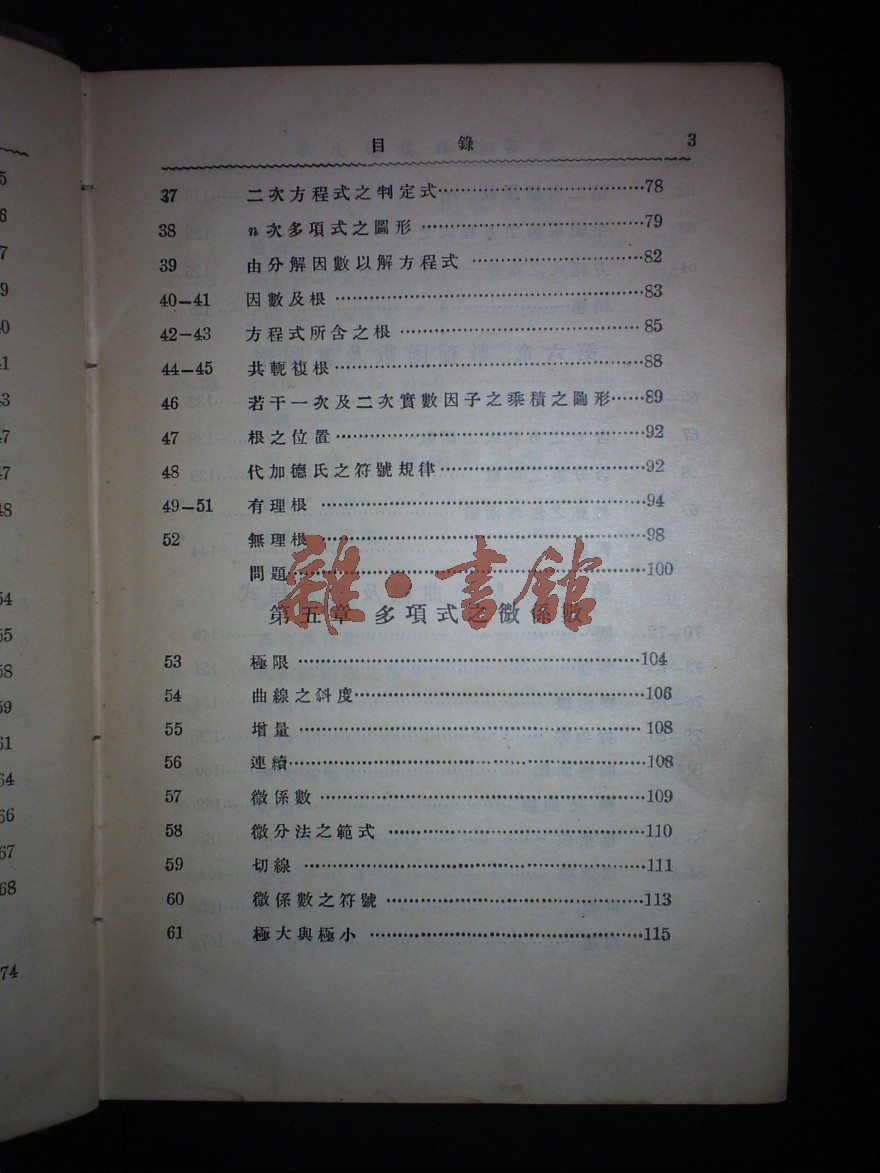 目錄 3
37 二次方程式之判定式 78
38 n次多項式之圖形 79
39 由分解因數以解方程式 82
40—41 因數及根 83
42—43 方程式所含之根 85
44—45 共軛複根 88
46 若干一次及二次實數因子之乘積之圖形 89
47 根之位置 92
48 代加德氏之符號規律 92
49—51 有理根 94
52 無理根 98
問題 100
雜·書館
第五章 多項式之微係數
53 極限 104
54 曲線之斜度 106
55 增量 108
56 連續 108
57 微係數 109
58 微分法之範式 110
59 切線 111
60 微係數之符號 113
61 極大與極小 115